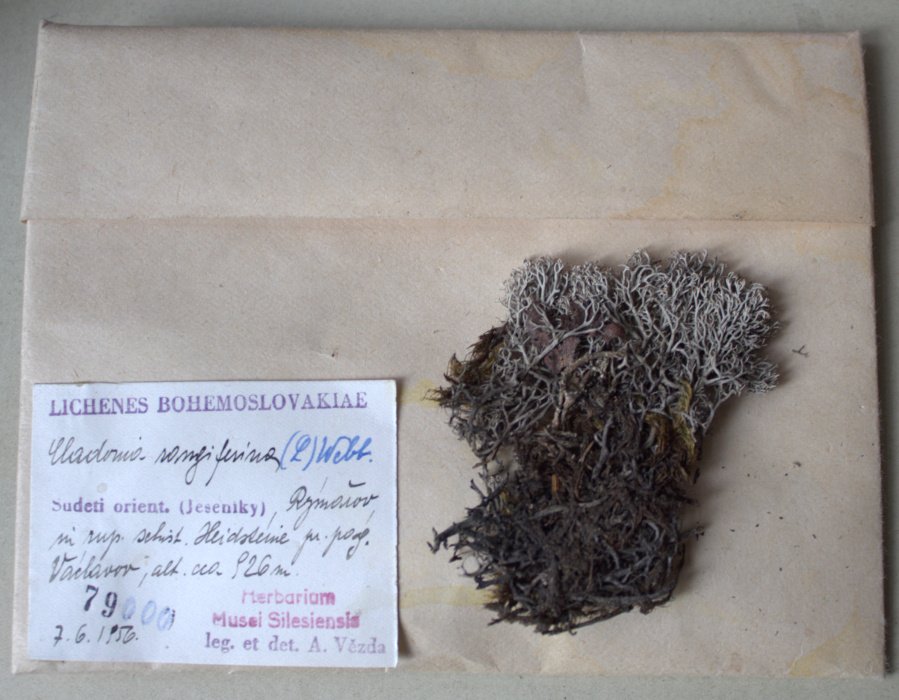 LICHENES BOHEMOSLOVAKIAE
Cladonia rangiferina (L) Web.
Sudeti orient. (Jeseníky), Rýmařov
in rup. schist. Heidsteine pr. pag.
Václavov, alt. cca 926 m.
79000
Herbarium
Musei Silesiensis
7.6.1956.
leg. et det. A. Vězda